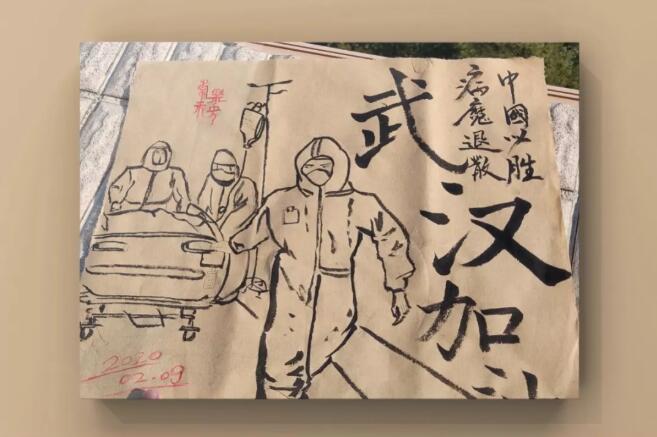 中國必胜
病魔退散
武汉加
2020
02.09